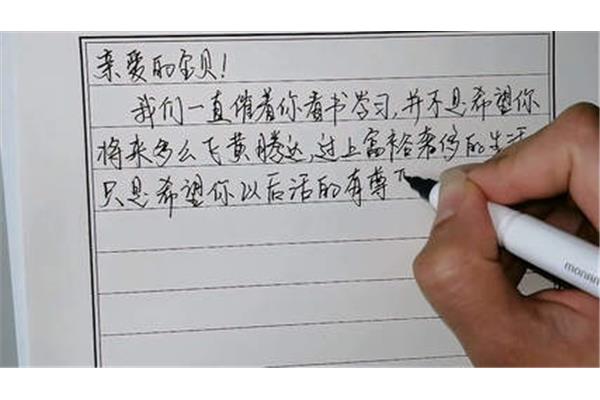 亲爱的宝贝！
我们一直催着你看书学习，并不是希望你
将来多么飞黄腾达，过上富裕奢侈的生活
只是希望你以后活的有尊